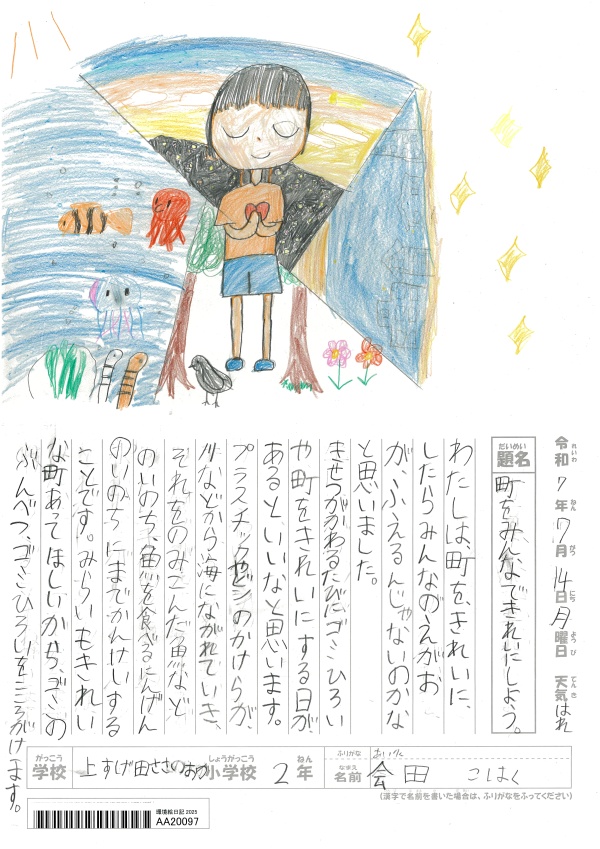 令和7年7月14日月曜日 天気はれ
れいわ ねん がつ にち ようび てんき
だいめい
題名 町をみんなできれいにしよう。
わたしは、町を、きれいに、
したらみんなのえがお
が、ふえるんじゃないのかな
と思いました。
きせつがかわるたびにゴミひろい
や町をきれいにする日が
あるといいなと思います。
プラスチックやビンのかけらが、
川などから海にながれていき、
それをのみこんだ魚など
のいのち、魚を食べるにんげん
のいのちにまでかんけいする
ことです。みらいもきれい
な町あてほしいから、ゴミの
ぶんべつ、ゴミひろいをこころがけます。
がっこう しょうがっこう ねん
学校 上すげ田ささのおか小学校 2年
ふりがな
なまえ
名前 会田 こはく
(漢字で名前を書いた場合は、ふりがなをふってください)
環境絵日記 2025
AA20097